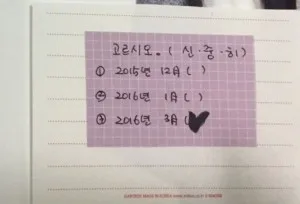 고르시오. (신·중·히)
① 2015년 12月 ( )
② 2016년 1月 ( )
③ 2016년 3月 (